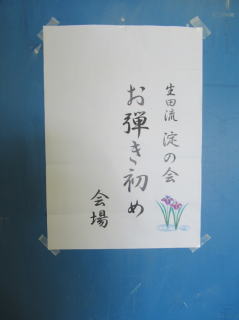 生田流 淀の会
お弾き初め
会場